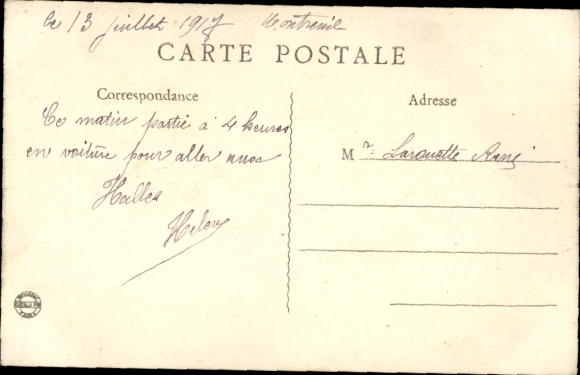 Ce 13 juillet 1917 Montreuil
CARTE POSTALE
Correspondance
Adresse
Ce matin partie à 4 heures
en voiture pour aller aux
Halles
Helen
M r Larouette